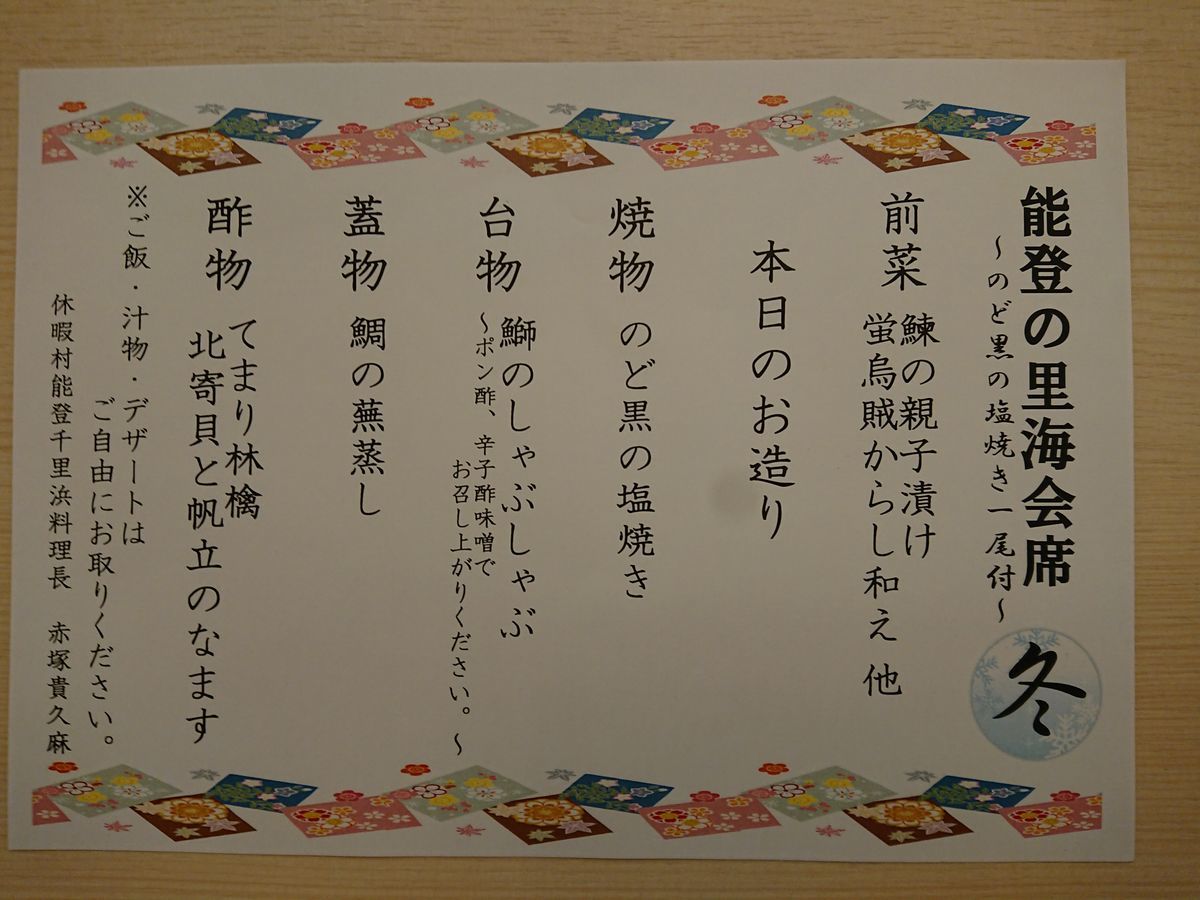 能登の里海会席
～のど黒の塩焼き一尾付～
冬
前菜
鰊の親子漬け
蛍烏賊からし和え 他
本日のお造り
焼物 のど黒の塩焼き
台物
鰤のしゃぶしゃぶ
～ポン酢、辛子酢味噌で
お召し上がりください。～
蓋物 鯛の蕪蒸し
酢物
てまり林檎
北寄貝と帆立のなます
※ご飯・汁物・デザートは
ご自由にお取りください。
休暇村能登千里浜料理長 赤塚貴久麻